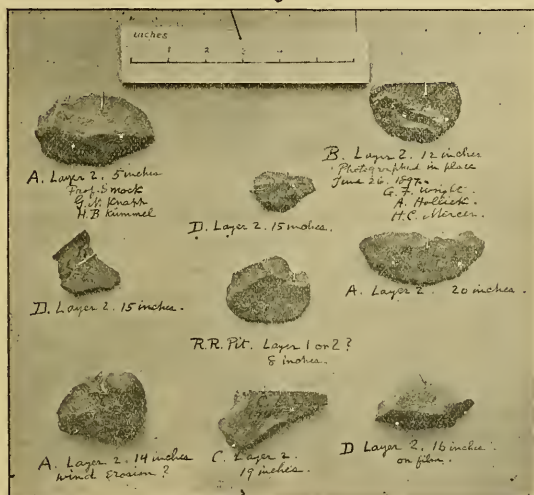 inches
1 2 3 4
A. Layer 2. 5 inches
Prof. Smock
G. N. Knapp
H. B. Kümmel
B. Layer 2. 12 inches
Photographed in place
June 26. 1897.
G. F. Wright.
A. Hollick.
H. C. Mercer.
D. Layer 2. 15 inches.
D. Layer 2. 15 inches.
A. Layer 2. 20 inches.
R.R. Pit. Layer 1 or 2?
8 inches.
A. Layer 2. 14 inches
wind Erosion?
C. Layer 2.
19 inches.
D Layer 2. 16 inches.
on film.